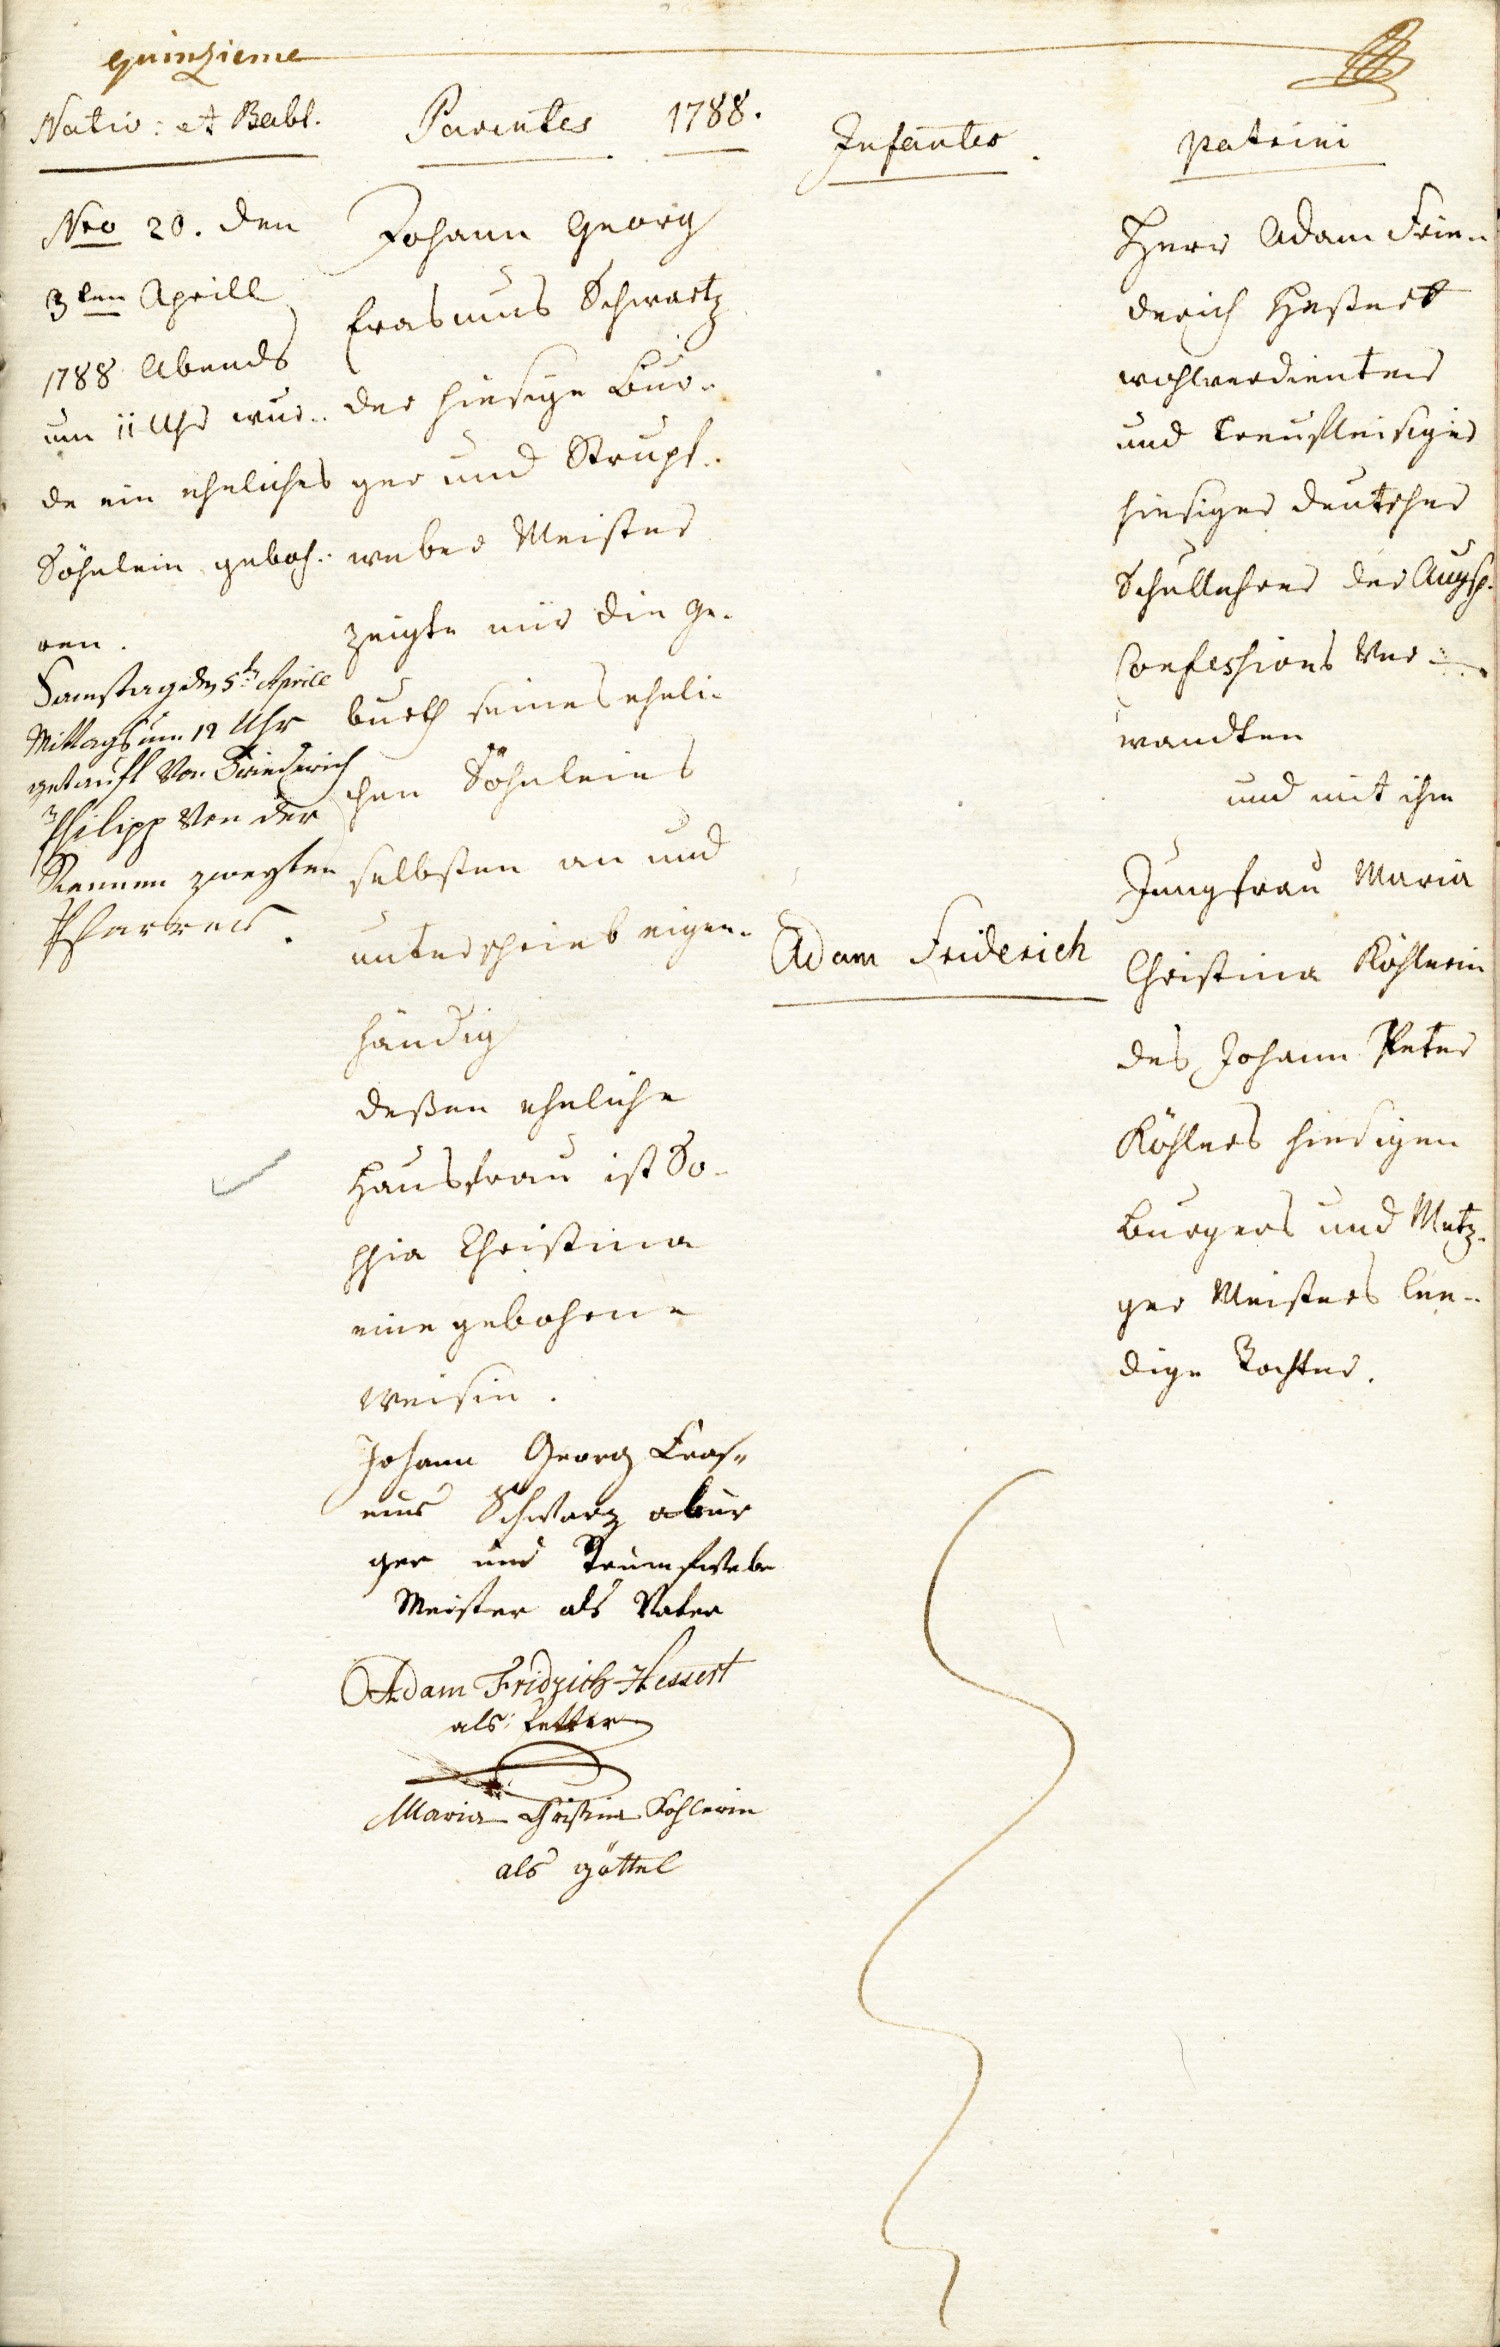 quinzieme
Nativ: et Babt.
Nro 20. den
3ten Aprill
1788 Abends
um 11 Uhr wur-
de ein eheliches
Söhnlein geboh-
ren.
Samstag den 5ten Aprill
Mittags um 12 Uhr
getauft von Friederich
Philipp Von der
zweyten
Pfarrer.
Parentes 1788.
Johann Georg
Erasmus Schwartz
der hiesige Bur-
ger und Strupf-
weber Meister
zeigte mir die Ge-
burth seines eheli-
chen Söhnleins
selbsten an und
unterschrieb eigen-
händig
deßen eheliche
Hausfrau ist So-
phia Christina
eine gebohrene
Weisin.
Johann Georg Eras-
mus Schwarz
ger und
Meister als Vatter
Adam Fridrich Hessert
als Petter
Maria Christina Kohlerin
als göttel
Infantes.
Adam Friderich
Patrini
Herr Adam Frie-
derich Heßert
wohlverdienter
und treufleisiger
hiesiger deutscher
Schullehrer der Augsp.
Confessions Ver-
wandten
und mit ihm
Jungfrau Maria
Christina Köhlerin
des Johann Peter
Köhlers hiesigen
Burgers und Metz-
ger Meisters lee-
dige Tochter.